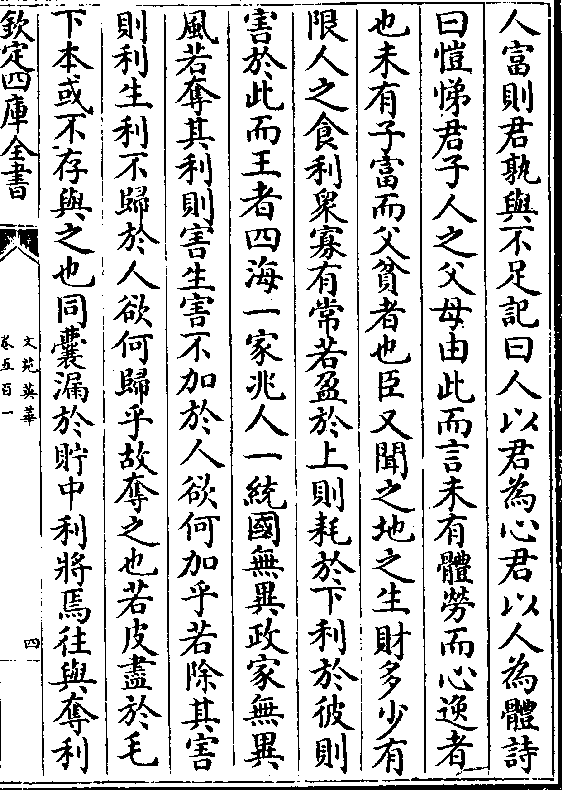 人富則君孰與不足記曰人以君為心君以人為體詩
曰愷悌君子人之父母由此而言未有體勞而心逸者
也未有子富而父貧者也臣又聞之地之生財多少有
限人之食利衆寡有常若盈於上則耗於下利於彼則
害於此而王者四海一家兆人一統國無異政家無異
風若奪其利則害生害不加於人欲何加乎若除其害
則利生利不歸於人欲何歸乎故奪之也若皮盡於毛
下本或不存與之也同囊漏於貯中利將焉往與奪利
欽定四庫全書
文苑英華
卷五百一
四